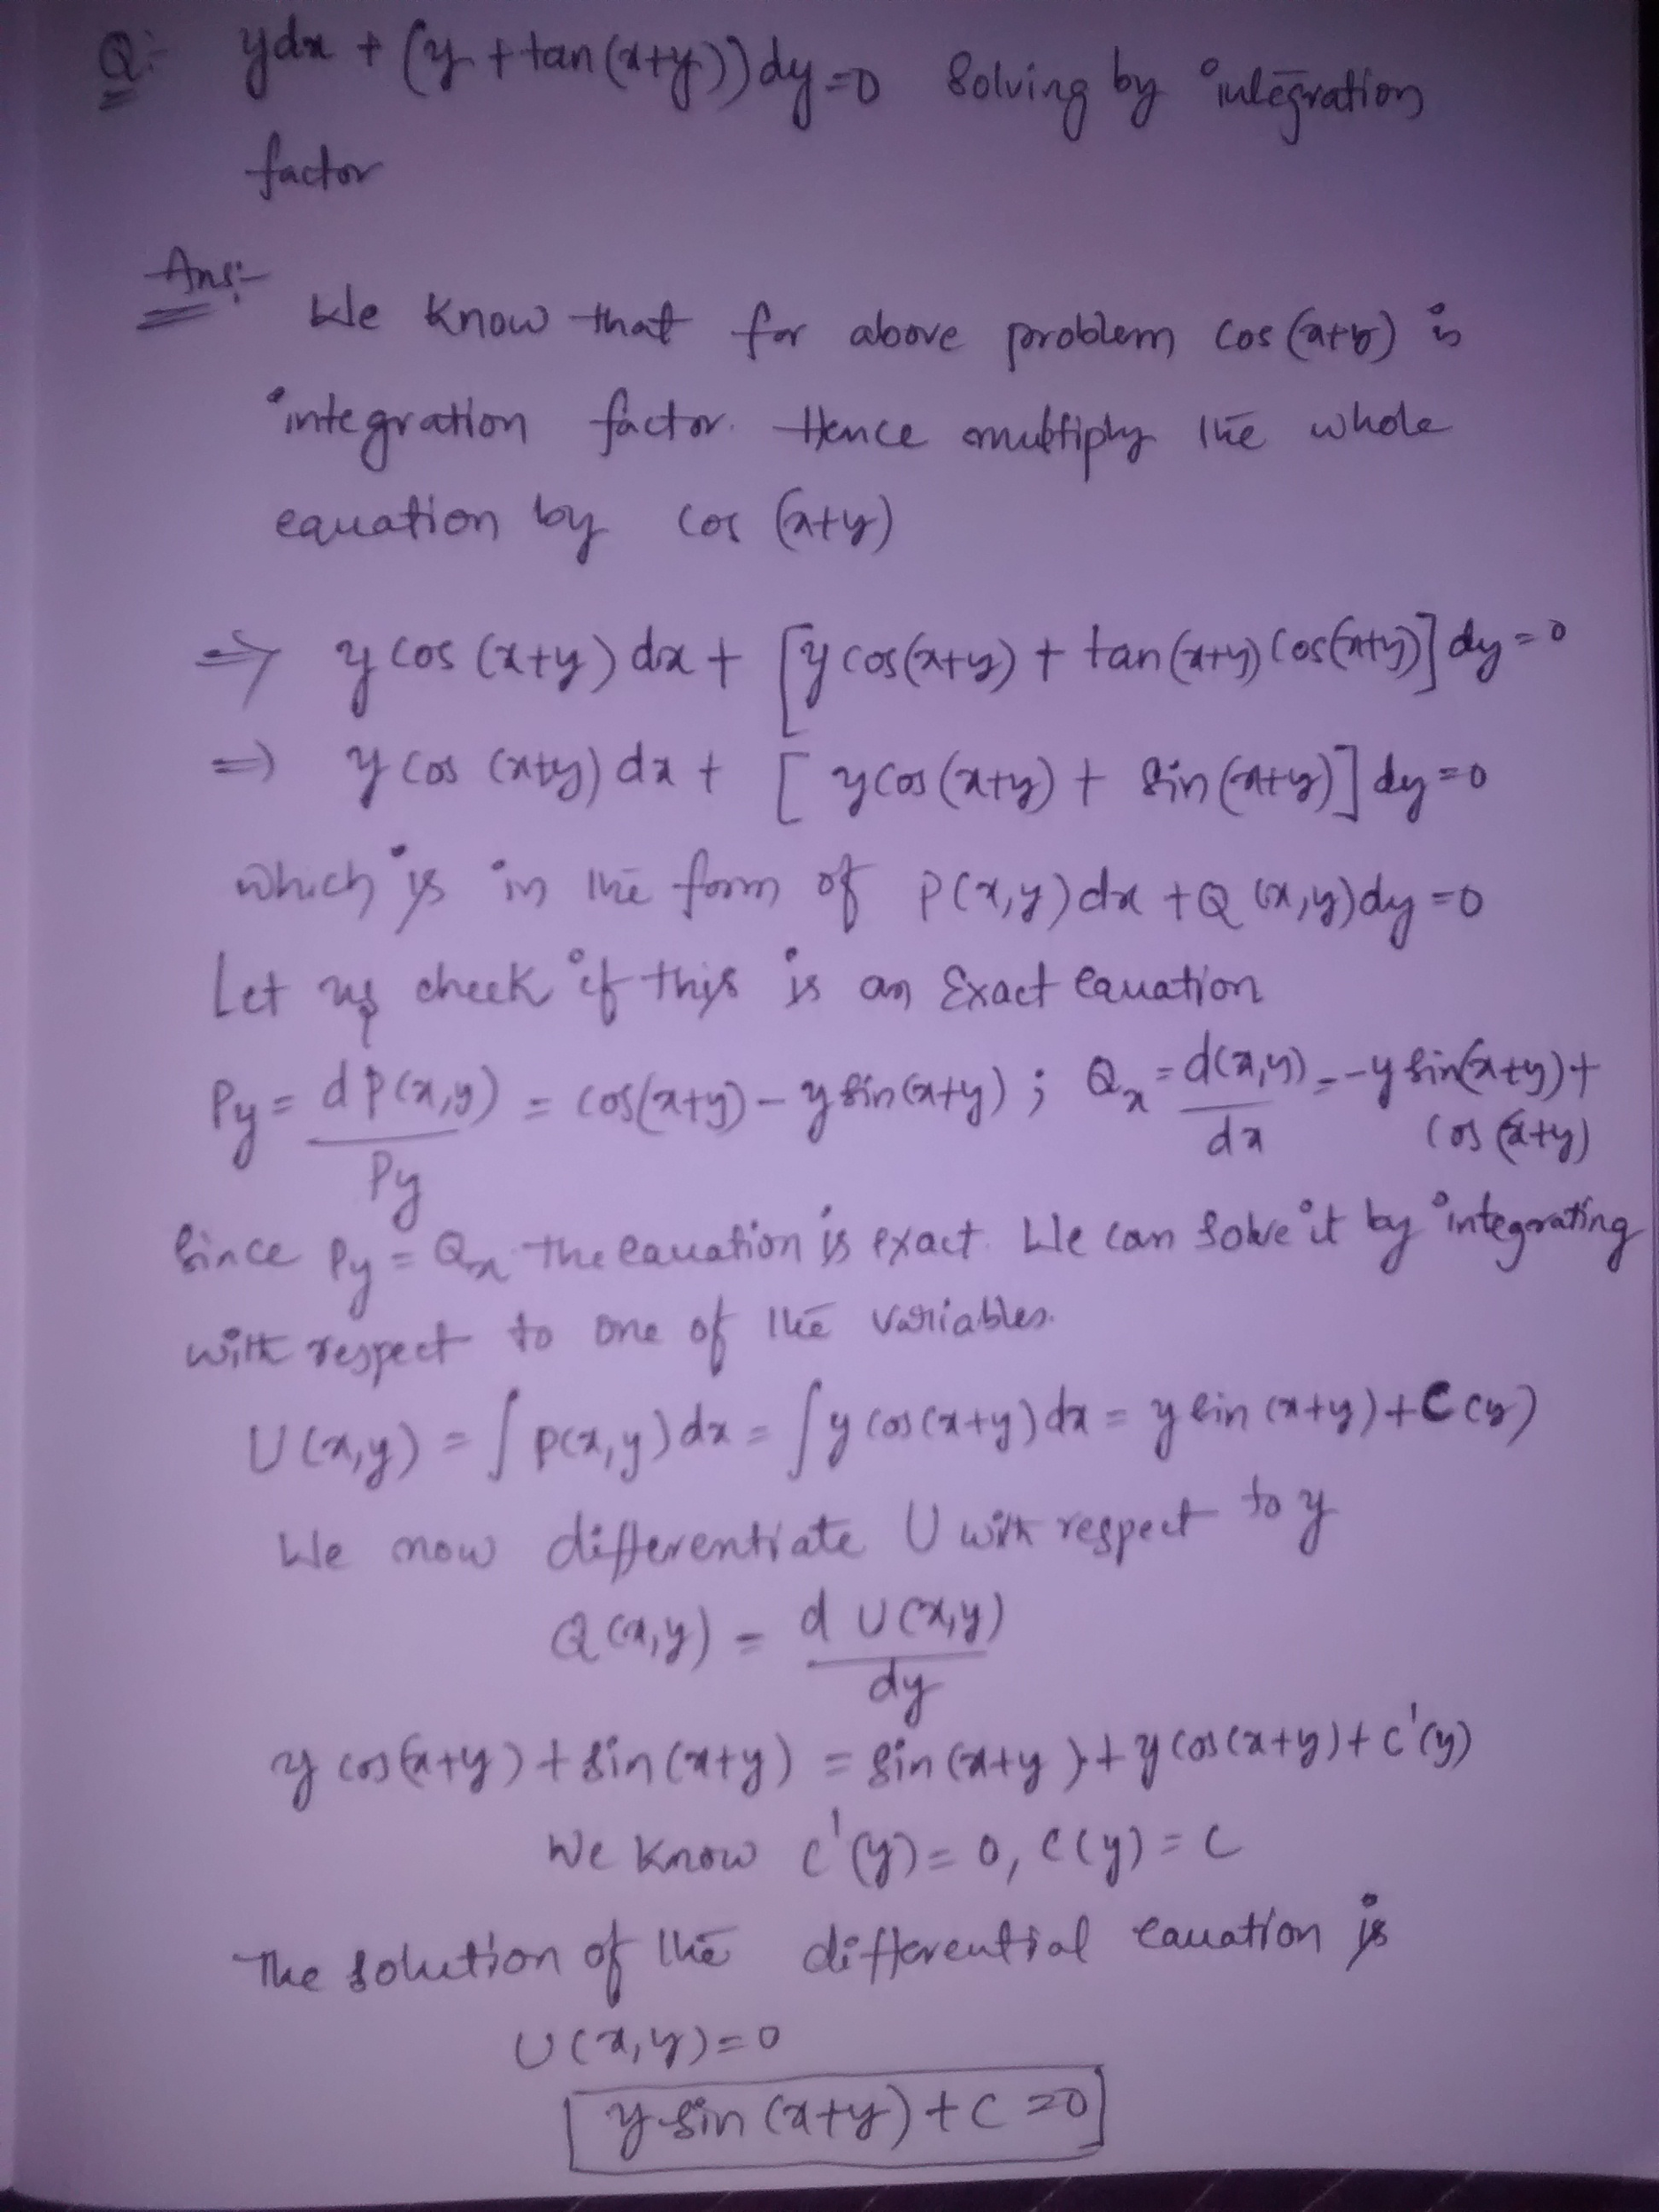 Q:- ydx + (y + tan(x+y))dy=0 Solving by integration
factor
Ans:-
We know that for above problem cos(x+y) is
integration factor. Hence multiply the whole
equation by cos (x+y)
⇒ y cos (x+y) dx + [y cos(x+y) + tan(x+y) cos(x+y)] dy=0
⇒ y cos (x+y) dx + [ y cos(x+y) + sin(x+y)] dy=0
which is in the form of P(x,y)dx +Q(x,y)dy=0
Let us check if this is an Exact equation
Py = dP(x,y)/Py = cos(x+y) - y sin(x+y) ; Qx = d(x,y)/dx = -y sin(x+y)+
cos (x+y)
Since Py = Qx the equation is exact. We can solve it by integrating
with respect to one of the variables.
U(x,y) = ∫ P(x,y)dx = ∫ y cos(x+y)dx = y sin (x+y)+C(y)
We now differentiate U with respect to y
Q(x,y) = d U(x,y)/dy
y cos(x+y)+sin(x+y) = sin(x+y)+y cos(x+y)+c'(y)
We know c'(y)=0, c(y)=C
The solution of the differential equation is
U(x,y)=0
y sin(x+y)+C=0